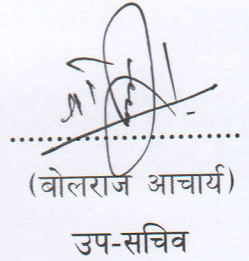 (बोलराज आचार्य)
उप-सचिव